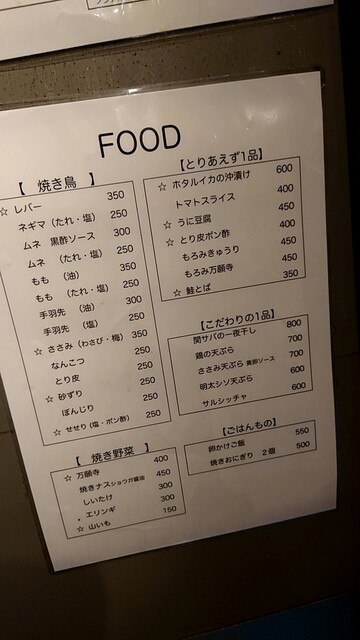 FOOD
【 焼き鳥 】
☆ レバー 350
ネギマ (たれ・塩) 250
ムネ 黒酢ソース 300
ムネ (たれ・塩) 250
もも (油) 350
もも (たれ・塩) 250
手羽先 (油) 300
手羽先 (塩) 250
☆ ささみ (わさび・梅) 350
なんこつ 250
とり皮 250
☆ 砂ずり 250
ぼんじり 250
☆ せせり (塩・ポン酢) 250
【 焼き野菜 】
☆ 万願寺 400
焼きナスショウガ醤油 450
しいたけ 300
・ エリンギ 300
☆ 山いも 150
【とりあえず1品】
☆ ホタルイカの沖漬け 600
トマトスライス 400
☆ うに豆腐 450
☆ とり皮ポン酢 400
もろみきゅうり 450
もろみ万願寺 450
☆ 鮭とば 350
【こだわりの1品】
関サバの一夜干し 800
鶏の天ぷら 700
ささみ天ぷら 黄卵ソース 700
明太シソ天ぷら 600
サルシッチャ 600
【ごはんもの】
卵かけご飯 550
焼きおにぎり 2個 500